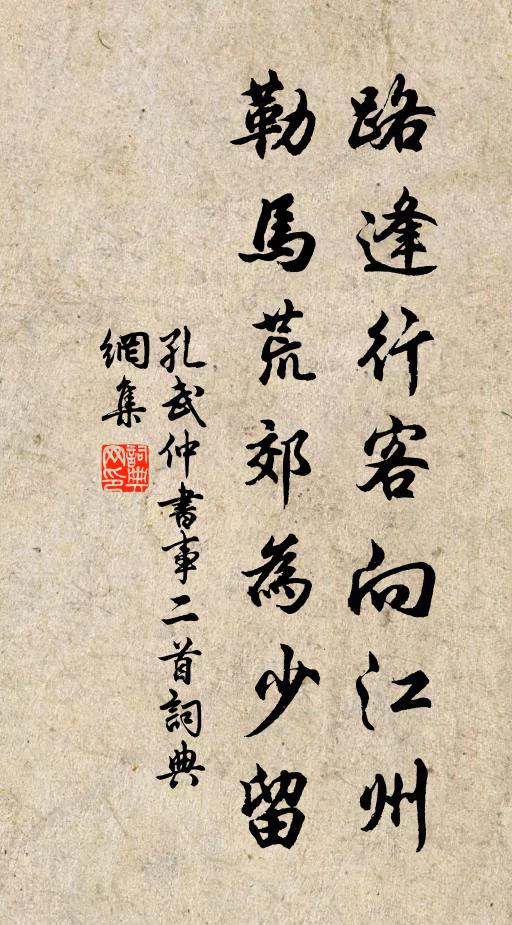 路逢行客向江州
勒馬荒郊為少留
孔武仲書事二首詞典
網集
詞典
网印